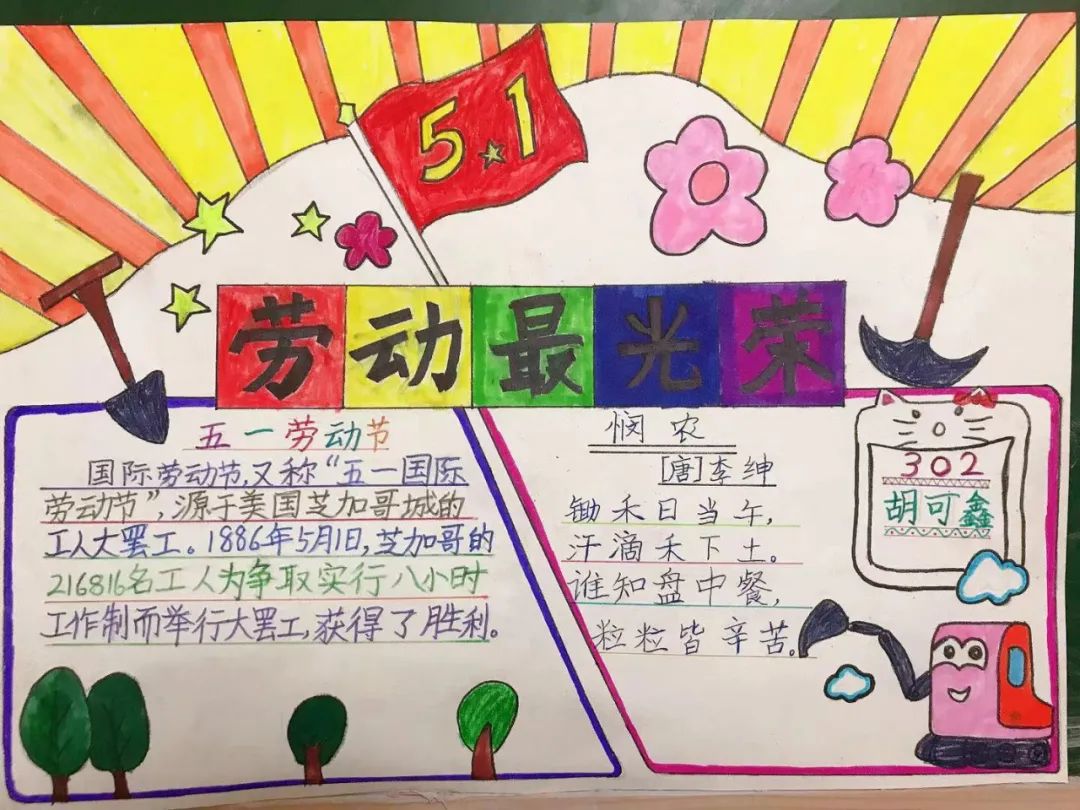 5.1
劳动最光荣
五一劳动节
国际劳动节,又称“五一国际
劳动节”,源于美国芝加哥城的
工人大罢工。1886年5月1日,芝加哥的
216816名工人为争取实行八小时
工作制而举行大罢工,获得了胜利。
悯农
[唐]李绅
锄禾日当午,
汗滴禾下土。
谁知盘中餐,
粒粒皆辛苦。
302
胡可鑫